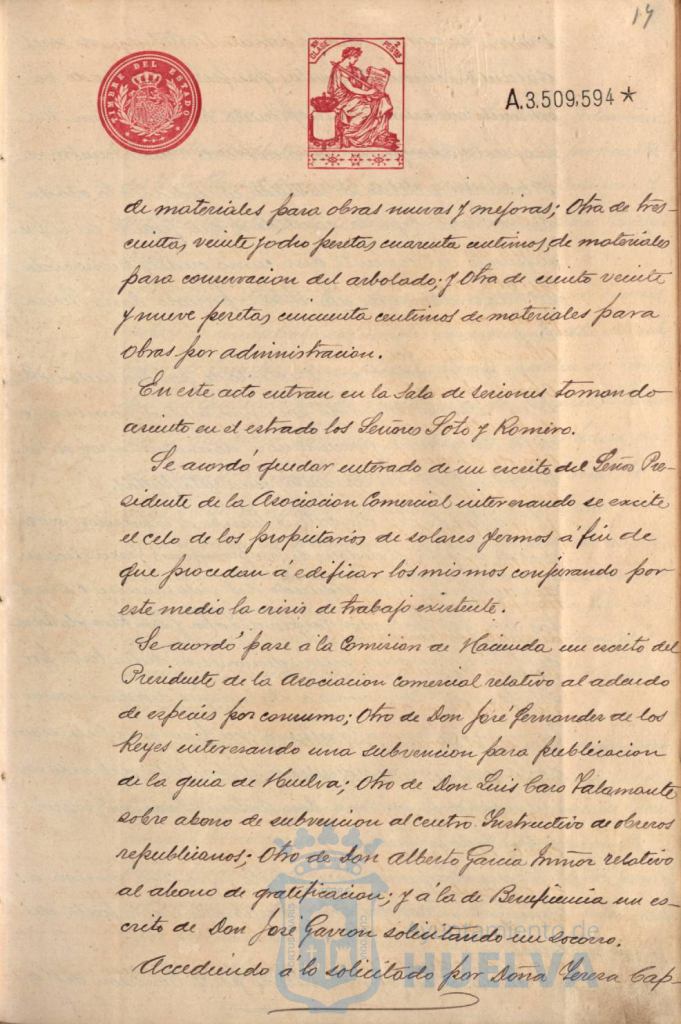 14
TIMBRE DEL ESTADO
CLASE
2
A.3.509,594*
de materiales para obras nuevas y mejoras; Otra de tres-
cientas veinte y ocho pesetas cuarenta centimos de materiales
para conservacion del arbolado; y Otra de ciento veinte
y nueve pesetas cincuenta centimos de materiales para
obras por administracion.
En este acto entran en la Sala de sesiones tomando
asiento en el estrado los Señores Soto y Romero.
Se acordó quedar enterado de un escrito del Señor Pre-
sidente de la Asociacion Comercial interesando se excite
el celo de los propietarios de solares yermos á fin de
que procedan á edificar los mismos conjurando por
este medio la crisis de trabajo existente.
Se acordó pase á la Comision de Hacienda un escrito del
Presidente de la Asociacion Comercial relativo al adeudo
de especies por consumo; Otro de Don José Fernandez de los
Reyes interesando una subvencion para publicacion
de la guia de Huelva; Otro de Don Luis Caro
sobre abono de subvencion al centro Instructivo de obreros
republicanos; Otro de Don Alberto Garcia relativo
al abono de gratificacion; y á la de Beneficencia un es-
crito de Don José Garron solicitando un socorro.
Accediendo á lo solicitado por Doña Teresa Cap-
Ayuntamiento de
HUELVA